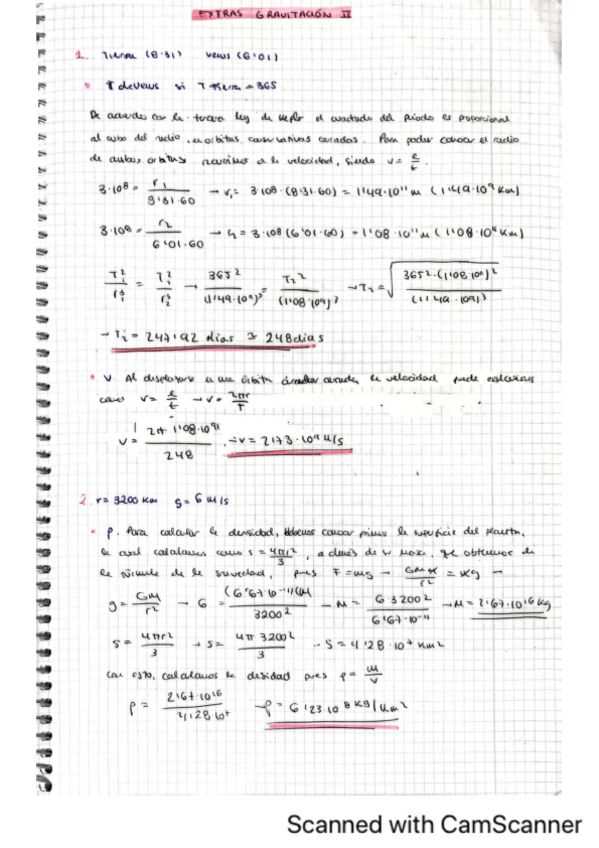 EXTRAS GRAVITACIÓN II
1. Tierra (8'31) Venus (6'01)
• T de Venus si T Tierra = 365
De acuerdo con la tercera ley de Kepler el cuadrado del periodo es proporcional
al cubo del radio, en órbitas cerradas. Para poder conocer el radio
de ambas órbitas recurrimos a la velocidad, siendo v = e/t.
3·10⁸ = r₁/8'31·60 → r₁ = 3·10⁸·(8'31·60) = 1'49·10¹¹ m (1'49·10⁸ Km)
3·10⁸ = r₂/6'01·60 → r₂ = 3·10⁸(6'01·60) = 1'08·10¹¹ m (1'08·10⁸ Km)
T₁²/r₁³ = T₂²/r₂³ → 365²/(1'49·10⁹)³ = T₂²/(1'08·10⁹)³ → T₂ = √365²·(1'08·10⁹)²/(1'49·10⁹)³
→ T₂ = 247'92 días ≃ 248 días
• v. Al desplazarse en una órbita circular cerrada, la velocidad puede calcularse
como v = e/t → v = 2πr/T
v = 2π 1'08·10⁹/248 → v = 2'73·10⁴ m/s
2. r = 3200 Km g = 6 m/s
• ρ. Para calcular la densidad, debemos conocer primero la superficie del planeta,
la cual calculamos como S = 4πr²/3, además de su masa, que obtenemos de
la fórmula de la gravedad, pues F = mg → GMm/r² = mg →
g = GM/r² → 6 = (6'67·10⁻¹¹)M/3200² → M = 6·3200²/6'67·10⁻¹¹ → M = 2'67·10¹⁶ kg
S = 4πr²/3 → S = 4π 3200²/3 → S = 4'28·10⁷ Km²
Con esto, calculamos la densidad pues ρ = m/v
ρ = 2'67·10¹⁶/4'28·10⁷ → ρ = 6'23·10⁸ kg/Km²
Scanned with CamScanner